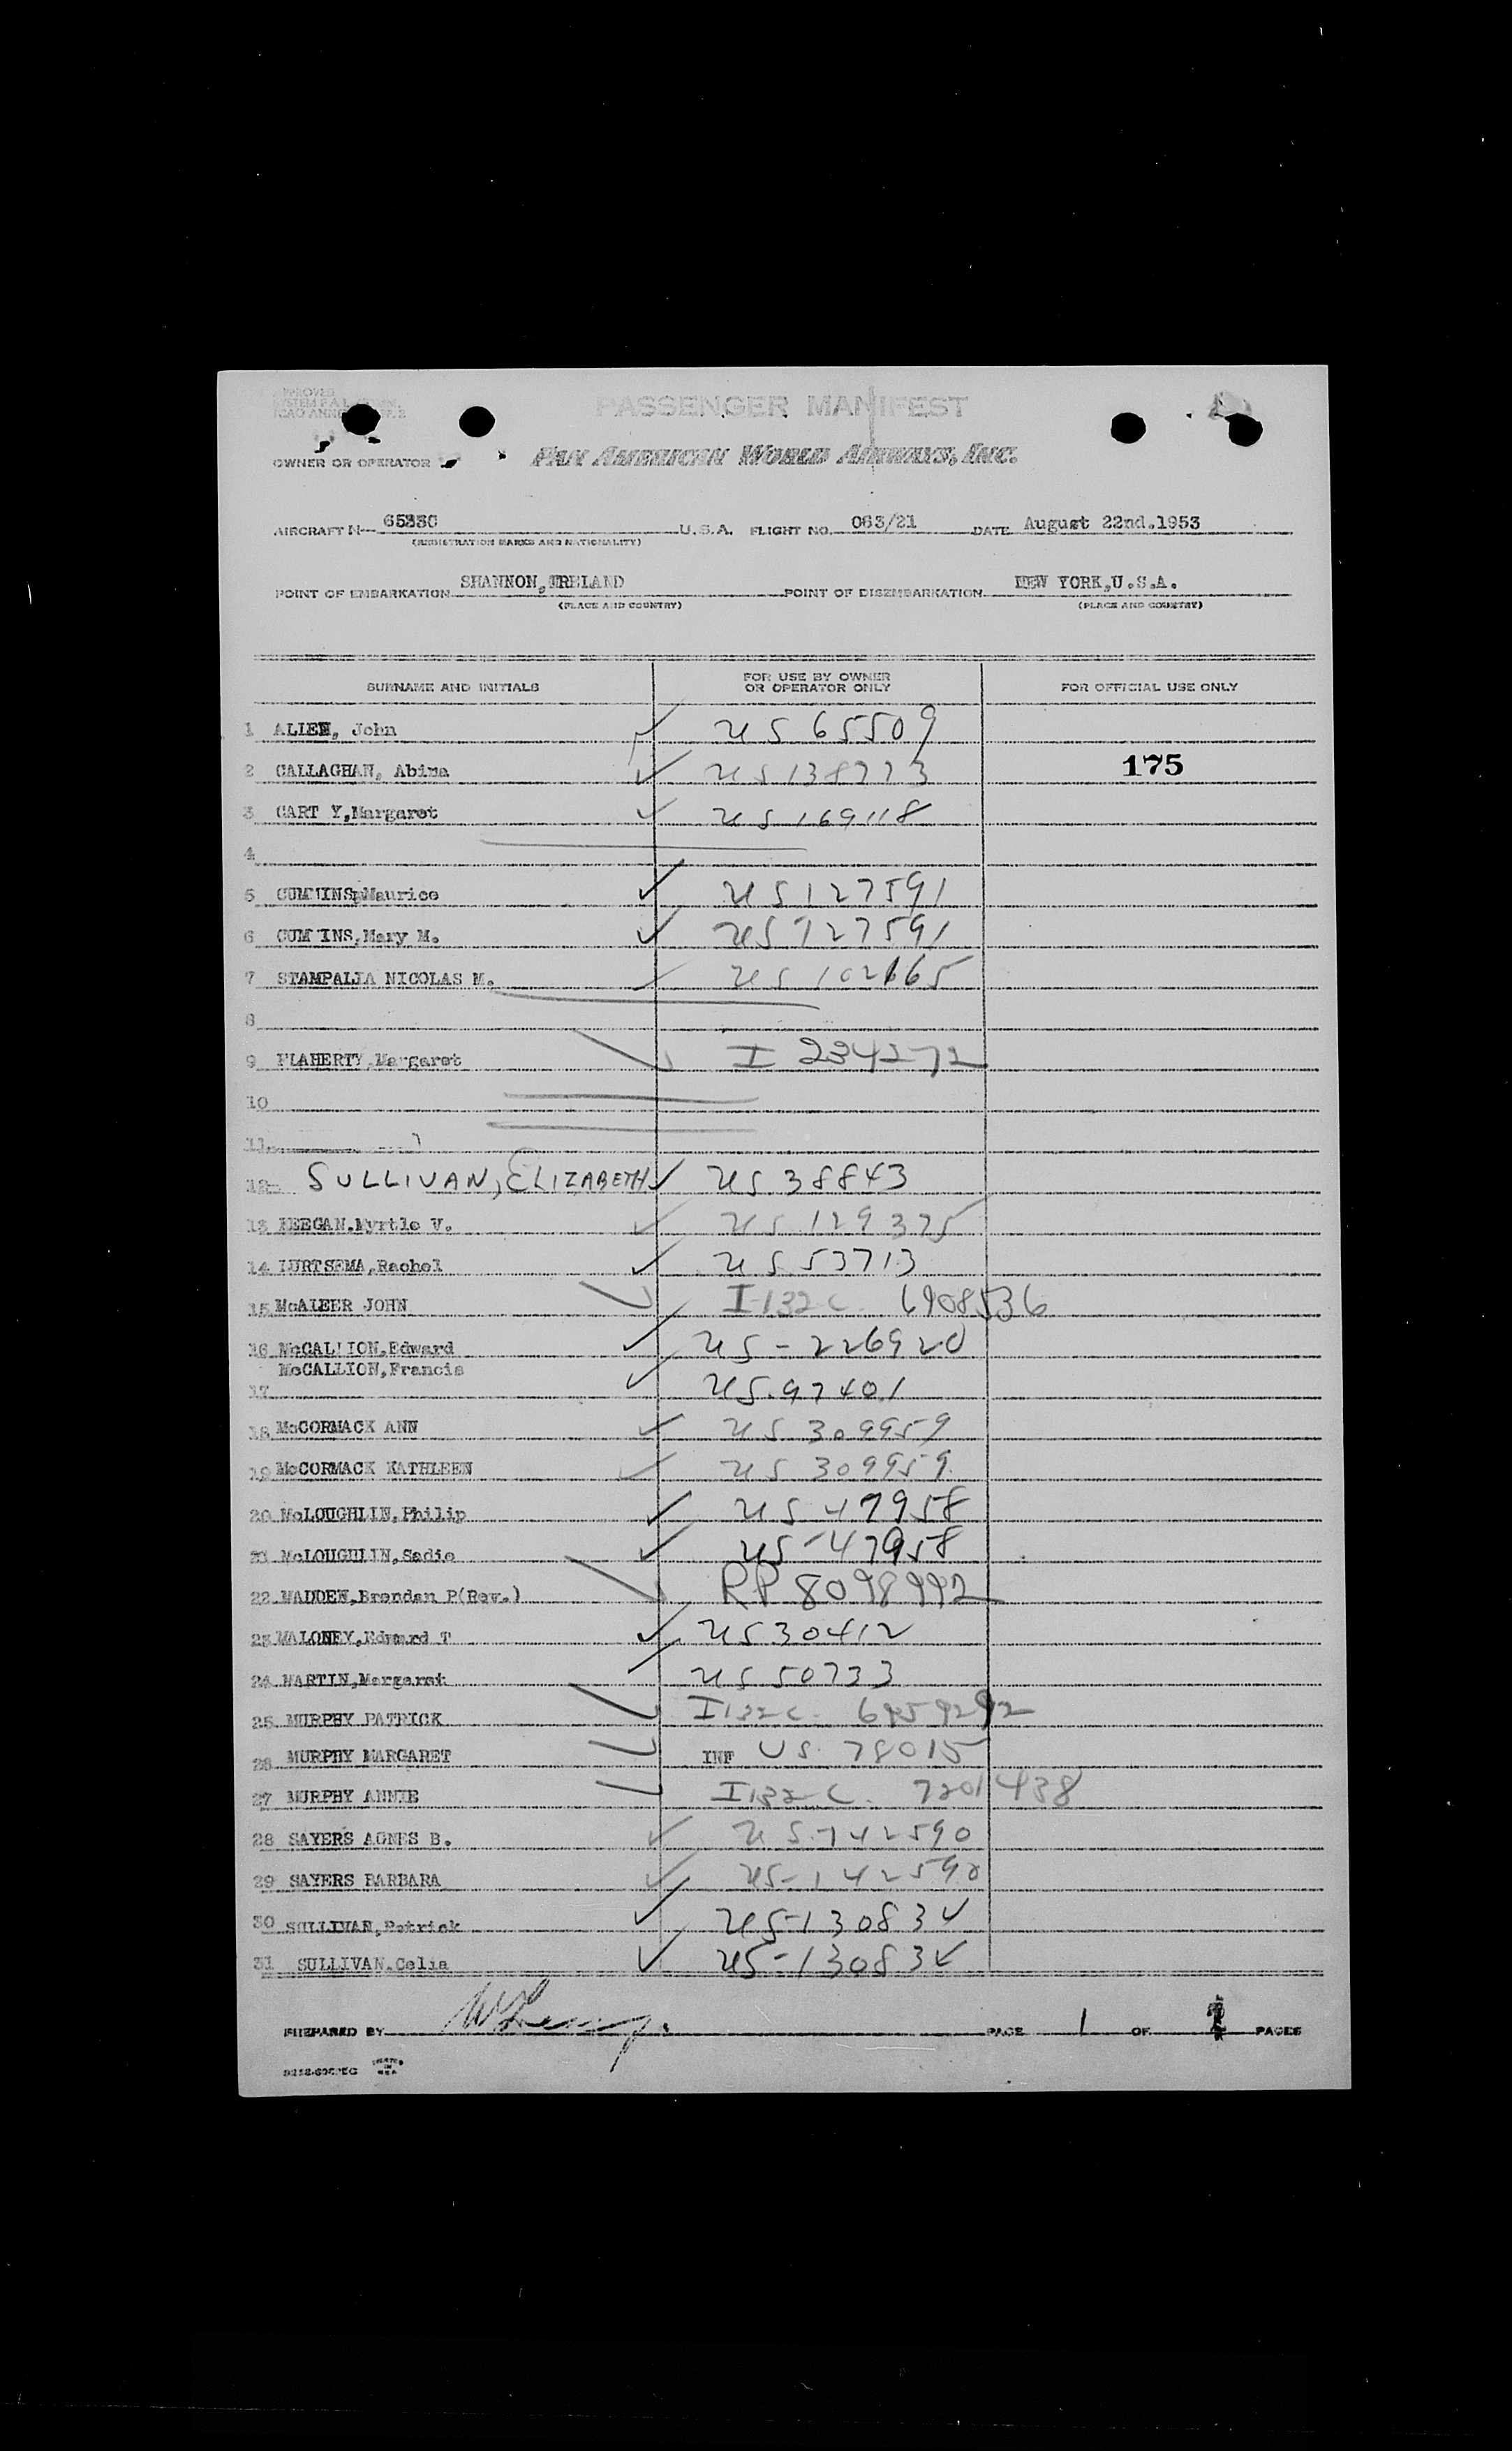 PASSENGER MANIFEST
OWNER OR OPERATOR PAN AMERICAN WORLD AIRWAYS, INC.
AIRCRAFT N- U.S.A. FLIGHT NO. 063/21 DATE August 22nd.1953
(REGISTRATION MARKS AND NATIONALITY)
POINT OF EMBARKATION SHANNON, IRELAND POINT OF DISEMBARKATION NEW YORK,U.S.A.
(PLACE AND COUNTRY) (PLACE AND COUNTRY)
SURNAME AND INITIALS FOR USE BY OWNER OR OPERATOR ONLY FOR OFFICIAL USE ONLY
1 ALLEN, John US 65509
2 CALLAGHAN, Abina US 138773 175
3 CART Y,Margaret US 169118
4
5 CUMMINS,Maurice US 127591
6 CUMMINS,Mary M. US 127591
7 STAMPALIA NICOLAS M. US 102665
8
9 FLAHERTY,Margaret I 234272
10
11
12 SULLIVAN, ELIZABETH US 38843
13 KEEGAN,Myrtle V. US 129375
14 LURTSEMA,Rachel US 53713
15 McALEER JOHN I-132 C. 6908536
16 McCALLION,Edward US-226920
McCALLION,Francis
17 US.97401
18 McCORMACK ANN US 309959
19 McCORMACK KATHLEEN US 309959
20 McLOUGHLIN,Philip US 47958
21 McLOUGHLIN,Sadie US-47958
22 MADDEN,Brendan P(Rev.) RP 8098992
23 MALONEY,Edward T US 30412
24 MARTIN,Margaret US 50733
25 MURPHY PATRICK I132 C.
26 MURPHY MARGARET INF US. 78015
27 MURPHY ANNIE I132 C. 7201438
28 SAYERS AGNES B. US 142590
29 SAYERS BARBARA US-142590
30 SULLIVAN,Patrick US-130834
31 SULLIVAN,Celia US-130834
PREPARED BY PAGE 1 OF PAGES